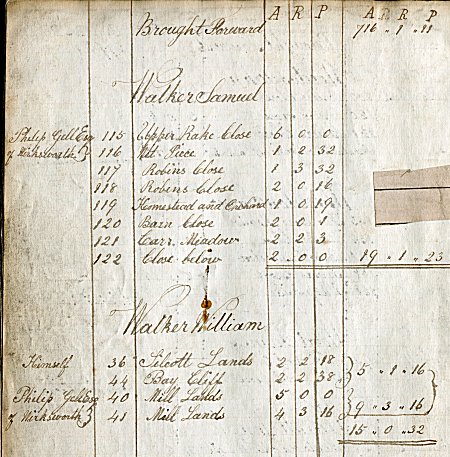 Brought Forward A R P A R P
716 " 1 " 11
Walker Samuel
Philip Gell Esq 115 Upper Rake Close 6 0 0
of Wirksworth } 116 Piece 1 2 32
117 Robins Close 1 3 32
118 Robins Close 2 0 16
119 Homestead and Orchard 1 0 19
120 Barn Close 2 0 1
121 Carr Meadow 2 2 3
122 Close below 2 0 0 19 " 1 " 23
Walker William
Himself 36 Silcott Lands 2 2 18
44 Bay Clift 2 2 38 } 5 " 1 " 16
Philip Gell Esq 40 Mill Lands 5 0 0
of Wirksworth } 41 Mill Lands 4 3 16 } 9 " 3 " 16
15 " 0 " 32